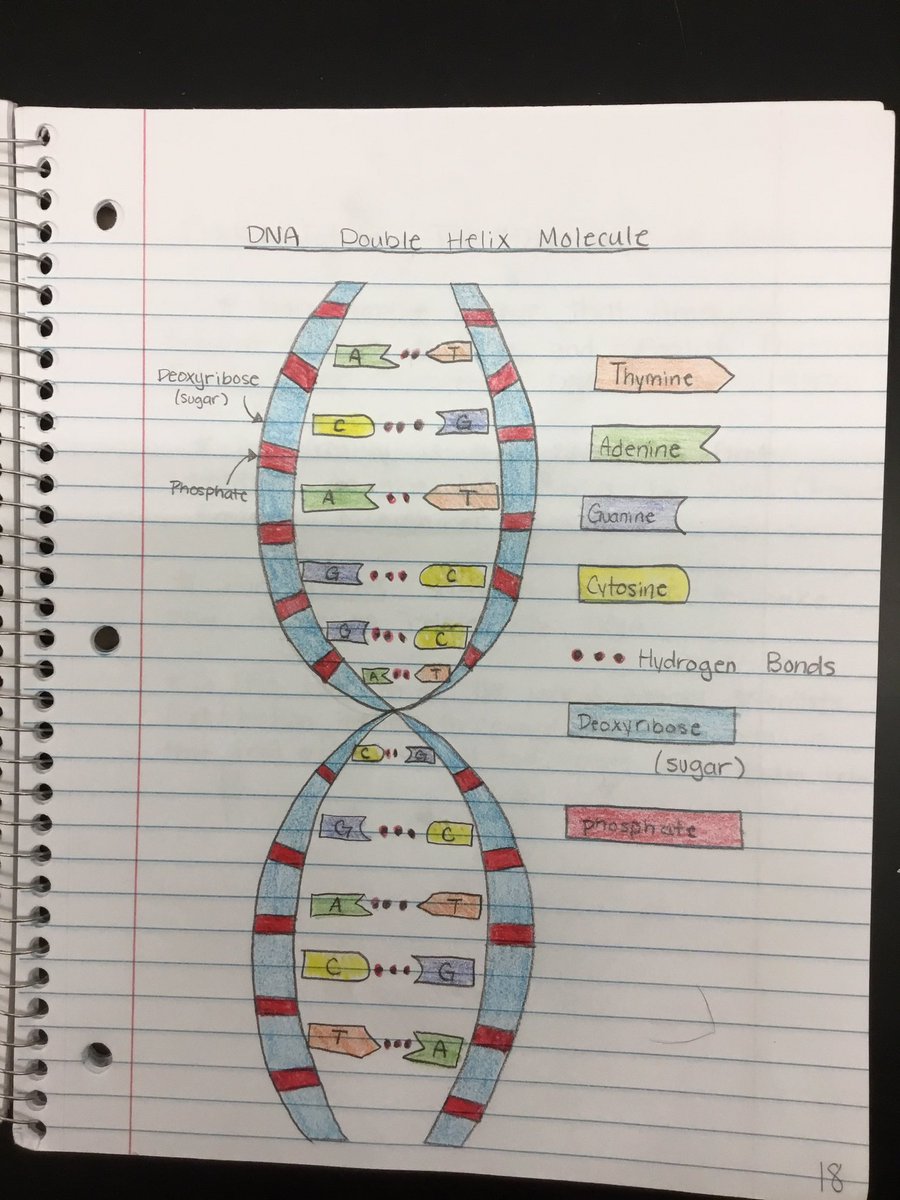 DNA Double Helix Molecule
A T
Deoxyribose
(sugar)
C G
Phosphate
A T
G C
G C
A T
C G
G C
A T
C G
T A
Thymine
Adenine
Guanine
Cytosine
Hydrogen Bonds
Deoxyribose
(sugar)
phosphate
18